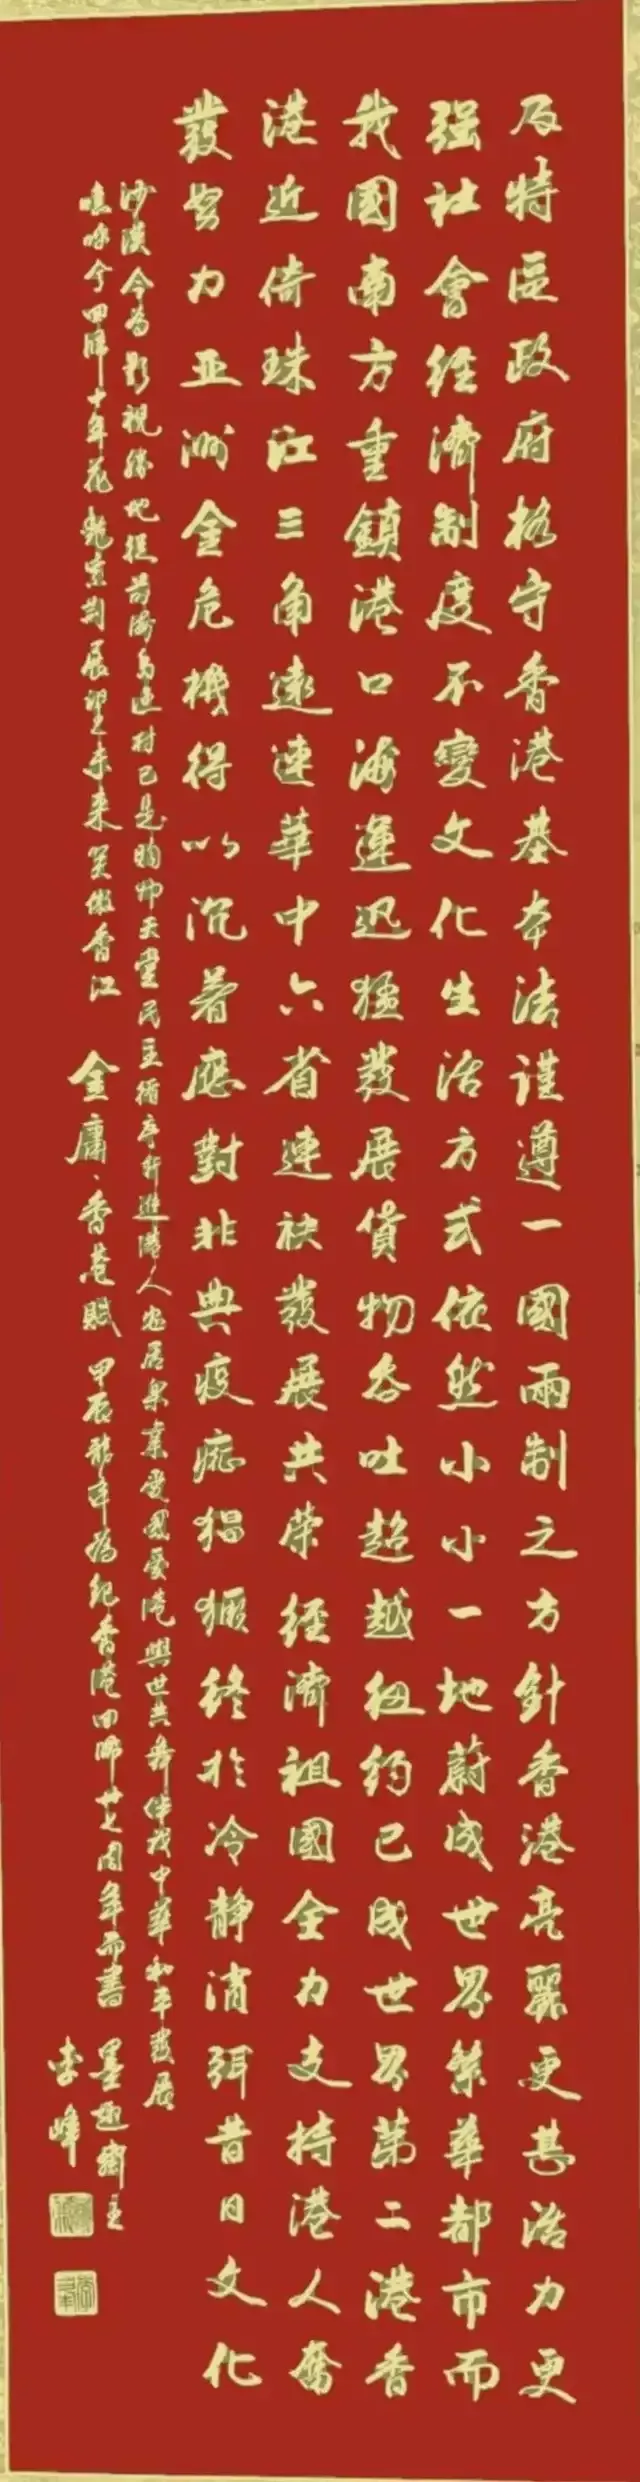 及特區政府恪守香港基本法謹遵一國兩制之方針香港亮麗更甚活力更
强社會經濟制度不變文化生活方式依然小小一地蔚成世界繁華都市而
我國南方重鎮港口海運迅猛發展貨物吞吐超越紐約已成世界第二港香
港近倚珠江三角遠連華中六省連袂發展共榮經濟祖國全力支持港人奮
發努力亚洲金危機得以沉着應對非典疫症猖獗終於冷靜消弭昔日文化
沙漠今為影視勝地從前海島村已是購物天堂民主循序行進港人安居樂業愛國愛港與世共舞伴我中華和平發展
嗚呼兮回歸十年花艷紫荆展望未来笑傲香江 金庸、香港賦 甲辰龍年為紀香港回歸廿七周年而書 墨趣齋主
李峰